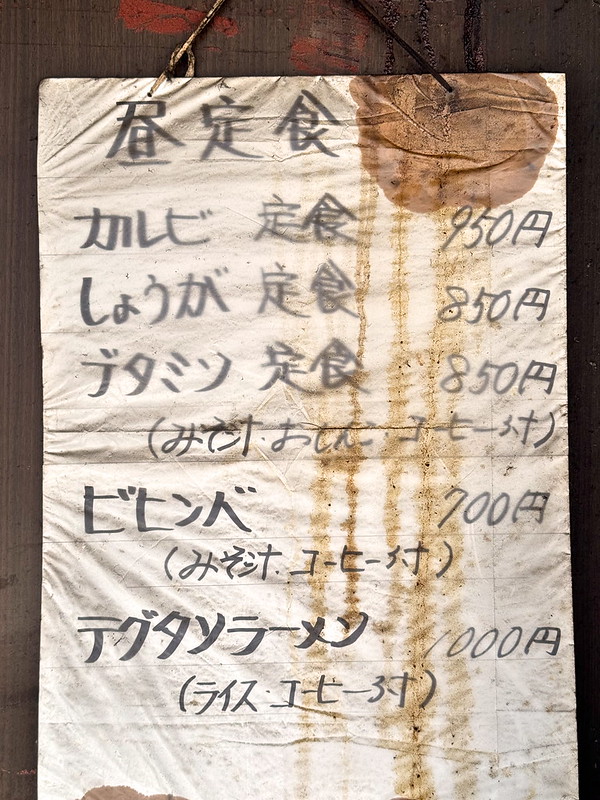 昼定食
カルビ 定食 950円
しょうが 定食 850円
ブタミソ 定食 850円
(みそ汁・おしんこ・コーヒー付)
ビビンバ 700円
(みそ汁・コーヒー付)
テグタンラーメン 1000円
(ライス・コーヒー付)